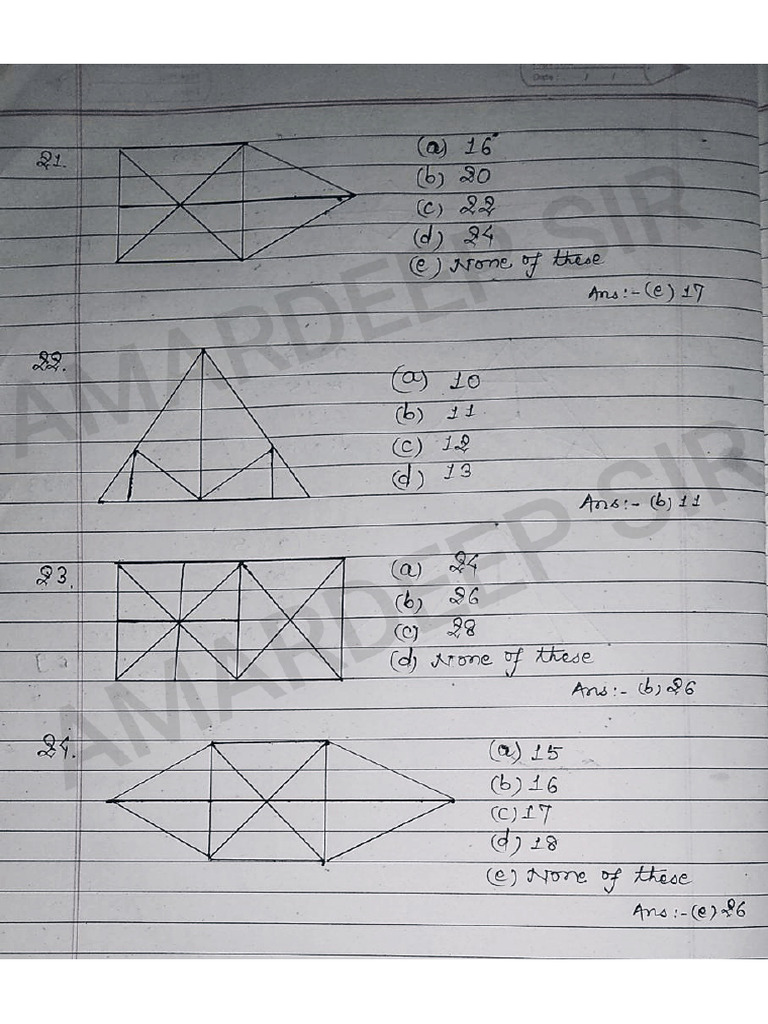 21.
(a) 16
(b) 20
(c) 22
(d) 24
(e) None of these
Ans:-(e) 17
22.
(a) 10
(b) 11
(c) 12
(d) 13
Ans:- (b) 11
23.
(a) 24
(b) 26
(c) 28
(d) None of these
Ans:- (b) 26
24.
(a) 15
(b) 16
(c) 17
(d) 18
(e) None of these
Ans:-(e) 26
AMARDEEP SIR
AMARDEEP SIR